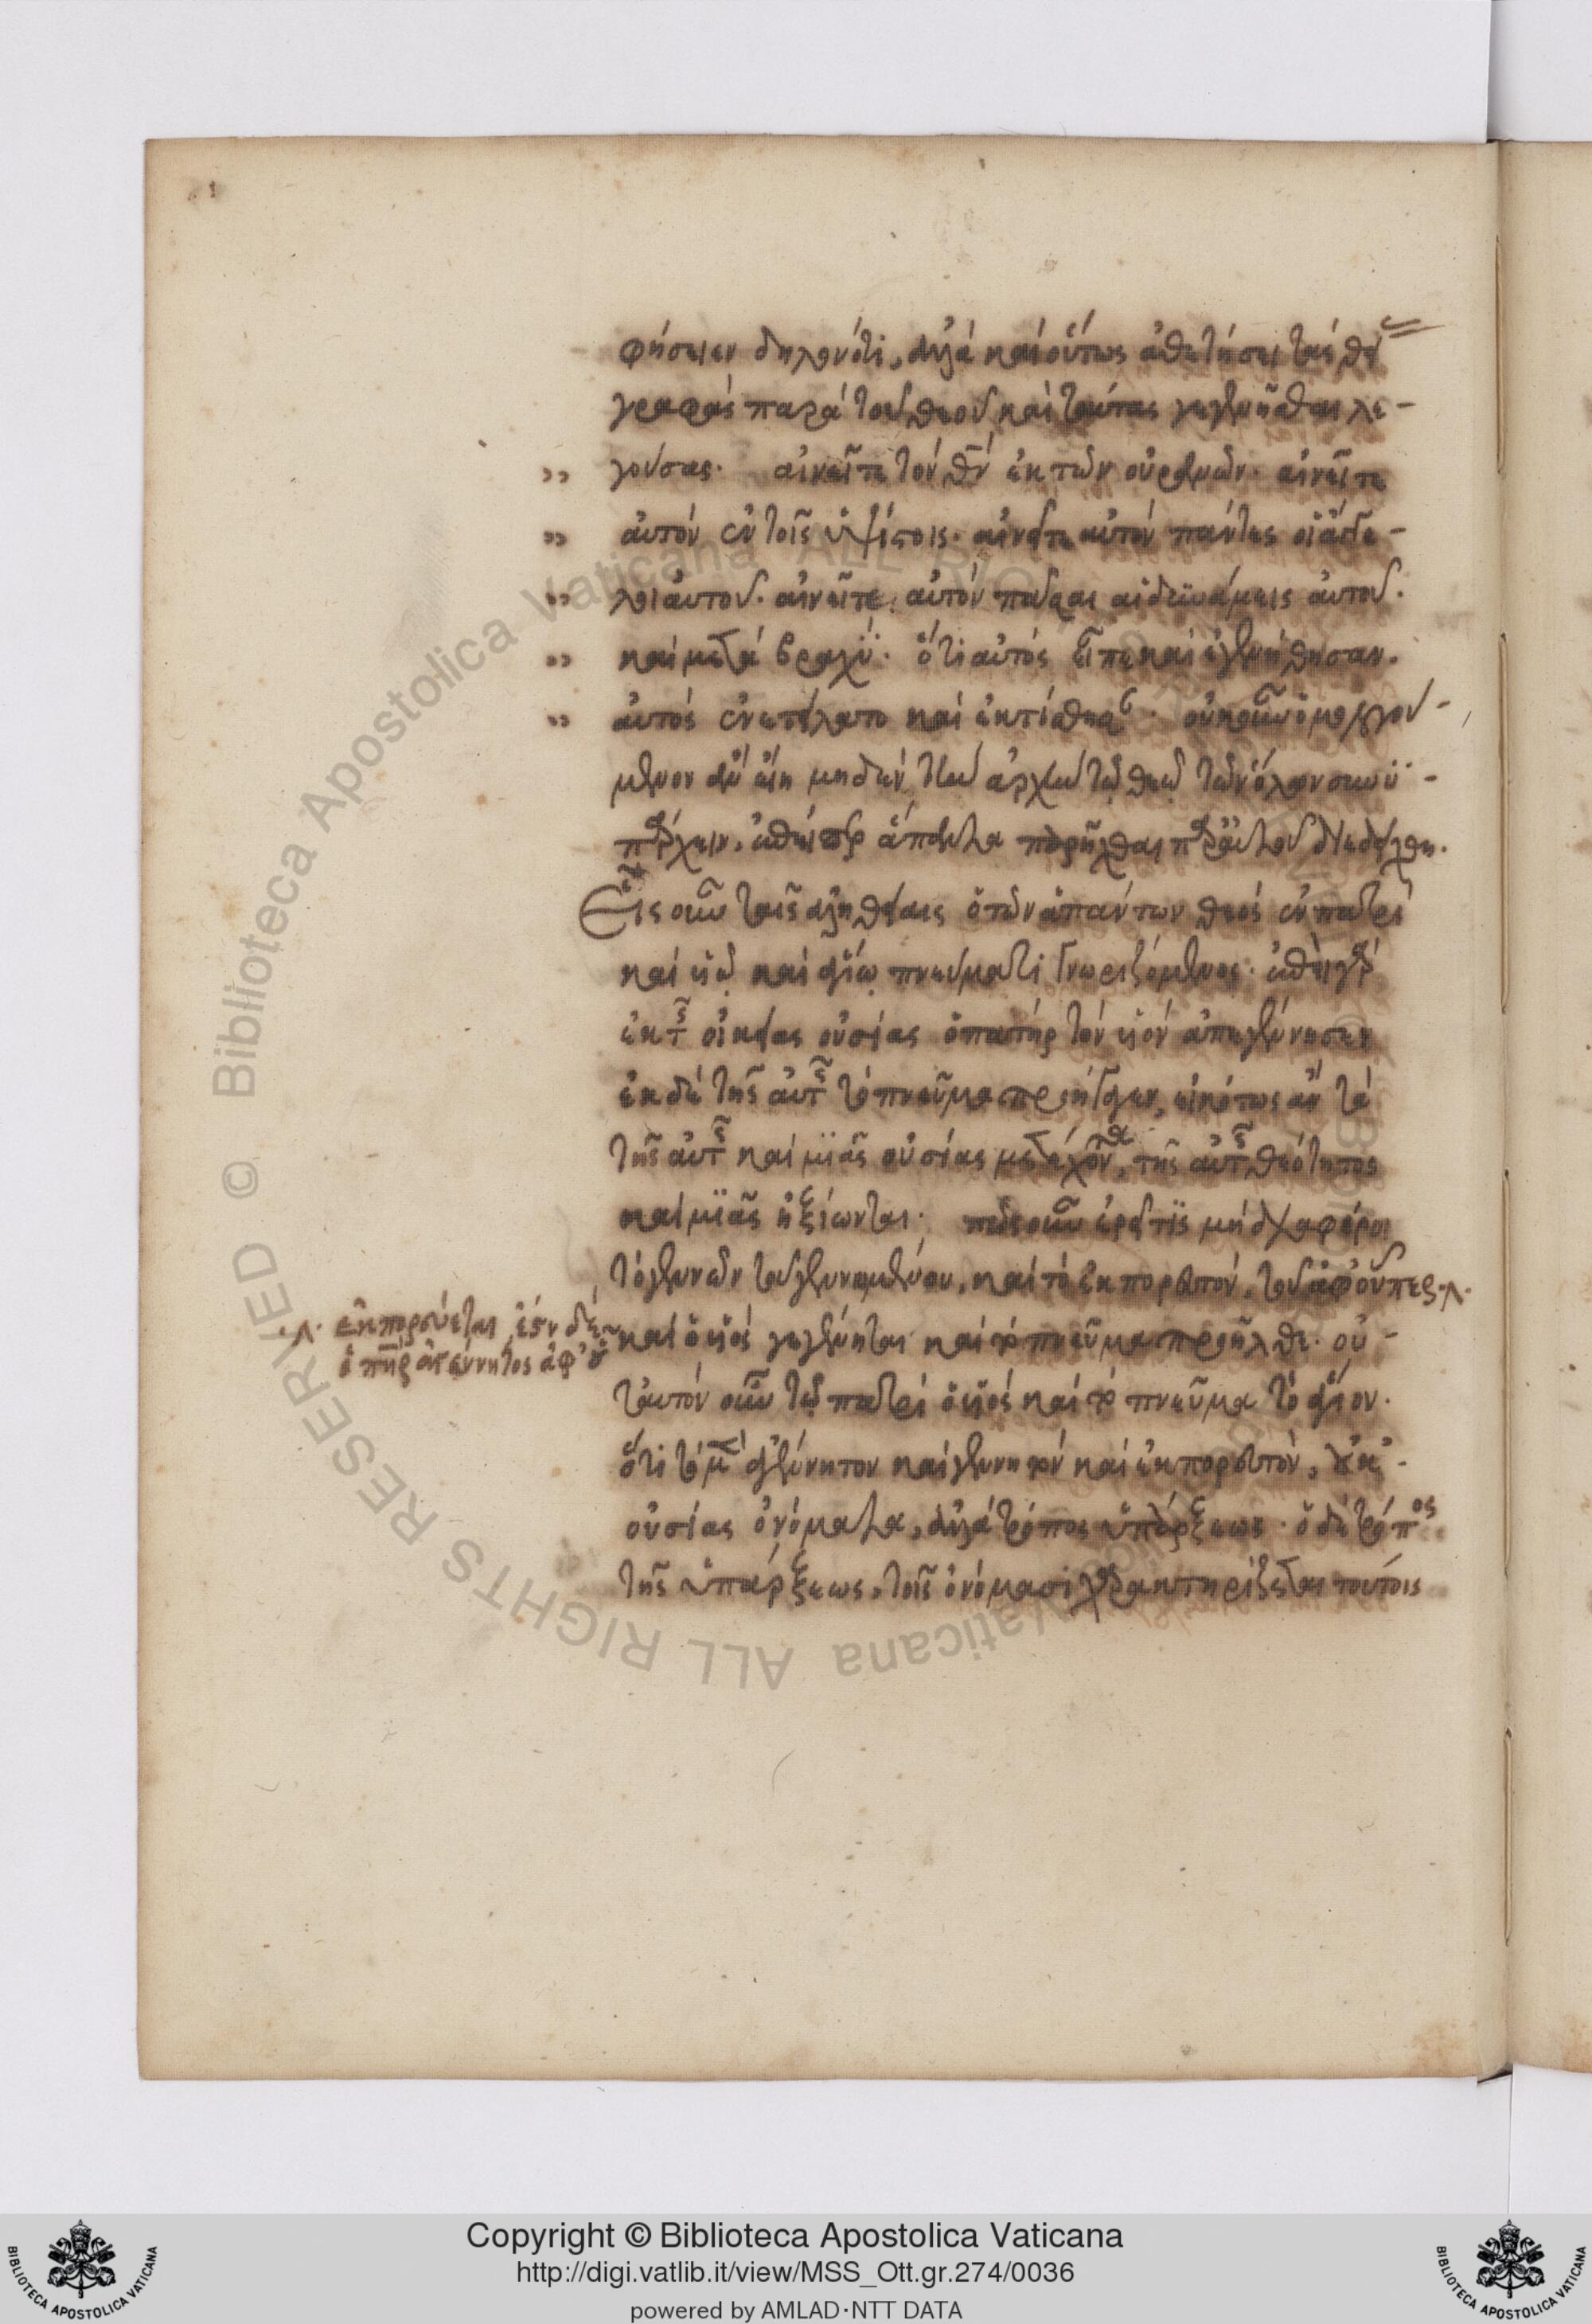 φήσειεν δηλονότι, ἀλλὰ καὶ οὕτως ἀθετήσει τὰς θείας
γραφὰς παρὰ τοῦ θεοῦ καὶ ταύτας γεγενῆσθαι λε-
γούσας. αἰνεῖτε τὸν θν ἐκ τῶν οὐρανῶν. αἰνεῖτε
αὐτὸν ἐν τοῖς ὑψίστοις. αἰνεῖτε αὐτὸν πάντες οἱ ἄγγε-
λοι αὐτοῦ. αἰνεῖτε αὐτὸν πᾶσαι αἱ δυνάμεις αὐτοῦ.
καὶ μετὰ βραχύ. ὅτι αὐτὸς εἶπε καὶ ἐγενήθησαν.
αὐτὸς ἐνετείλατο καὶ ἐκτίσθησαν. οὐκοῦν ὁμολογού-
μενον ἂν εἴη μηδὲν τὴν ἀρχὴν τῷ θεῷ τῶν ὅλων συνϋ-
πάρχειν, ἐπείπερ ἅπαντα παρῆχθαι παρ' αὐτοῦ διεδείχθη.
Εἷς οὖν ταῖς ἀληθείαις ὁ τῶν ἁπάντων θεὸς ἐν πατρὶ
καὶ υἱῷ καὶ ἁγίῳ πνεύματι γνωριζόμενος. ἐπεὶ γὰρ
ἐκ τῆς οἰκείας οὐσίας ὁ πατὴρ τὸν υἱὸν ἀπεγέννησεν
ἐκ δὲ τῆς αὐτῆς τὸ πνεῦμα προήγαγεν, εἰκότως ἂν τὰ
τῆς αὐτῆς καὶ μιᾶς οὐσίας μετέχοντα, τῆς αὐτῆς θεότητος
καὶ μιᾶς ἠξίωνται. πῶς οὖν ἐρεῖ τις μὴ διαφέροι
τὸ γεννῶν τοῦ γεννωμένου, καὶ τὸ ἐκπορευτὸν, τοῦ ἀφ' οὗπερ
ἐκπορεύεται, ἔστιν δὲ
ὁ πηρ ἀγέννητος ἀφ' οὗ
καὶ ὁ υἱὸς γεγέννηται καὶ τὸ πνεῦμα προῆλθε. οὐ-
ταυτὸν οὖν τῷ πατρὶ ὁ υἱὸς καὶ τὸ πνεῦμα τὸ ἅγιον.
ὅτι τὸ μὲν ἀγέννητον καὶ γεννητὸν καὶ ἐκπορευτὸν, οὐκ
οὐσίας ὀνόματα, ἀλλὰ τρόπος ὑπάρξεως. ὁ δὲ τρόπος
τῆς ὑπάρξεως, τοῖς ὀνόμασι χαρακτηρίζεται τούτοις
Copyright © Biblioteca Apostolica Vaticana
http://digi.vatlib.it/view/MSS_Ott.gr.274/0036
powered by AMLAD·NTT DATA
BIBLIOTECA APOSTOLICA VATICANA
BIBLIOTECA APOSTOLICA VATICANA
© Biblioteca Apostolica Vaticana ALL RIGHTS RESERVED